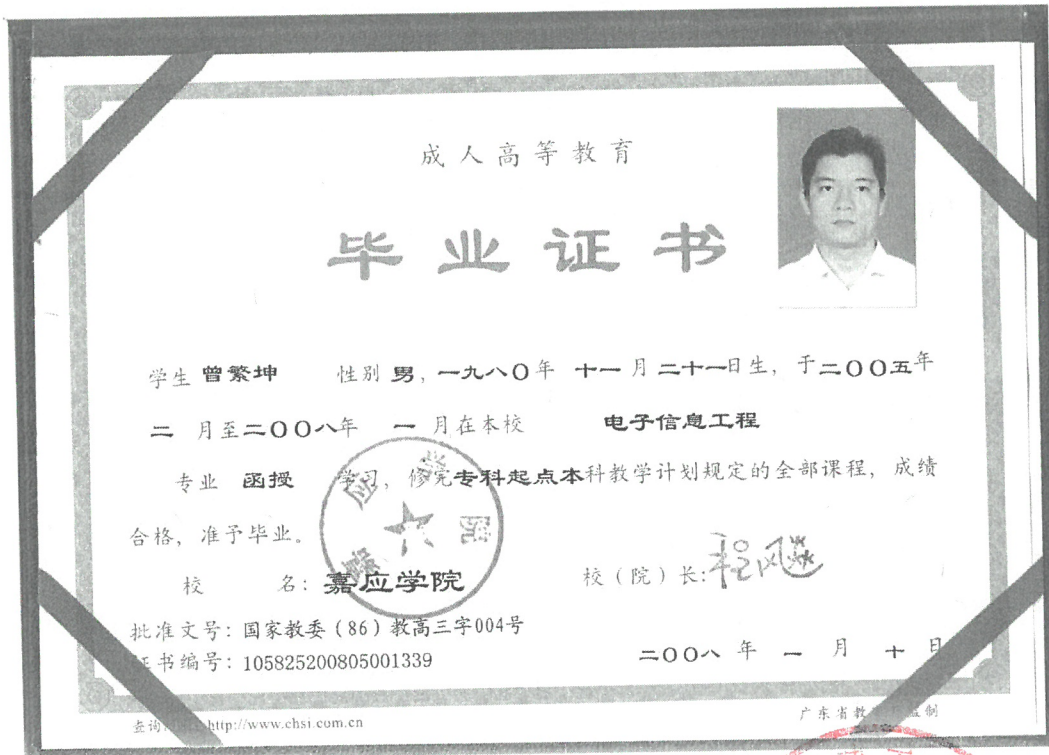 成人高等教育
毕业证书
学生 曾繁坤 性别 男, 一九八〇年 十一 月 二十一日生, 于二〇〇五年
二 月至二〇〇八年 一 月在本校 电子信息工程
专业 函授 学习, 修完专科起点本科教学计划规定的全部课程, 成绩
合格, 准予毕业。
校 名: 嘉应学院
校(院)长:
嘉应学院
批准文号: 国家教委(86)教高三字004号
证书编号: 105825200805001339
二〇〇八 年 一 月 十 日
查询 http://www.chsi.com.cn
广东省教 监制